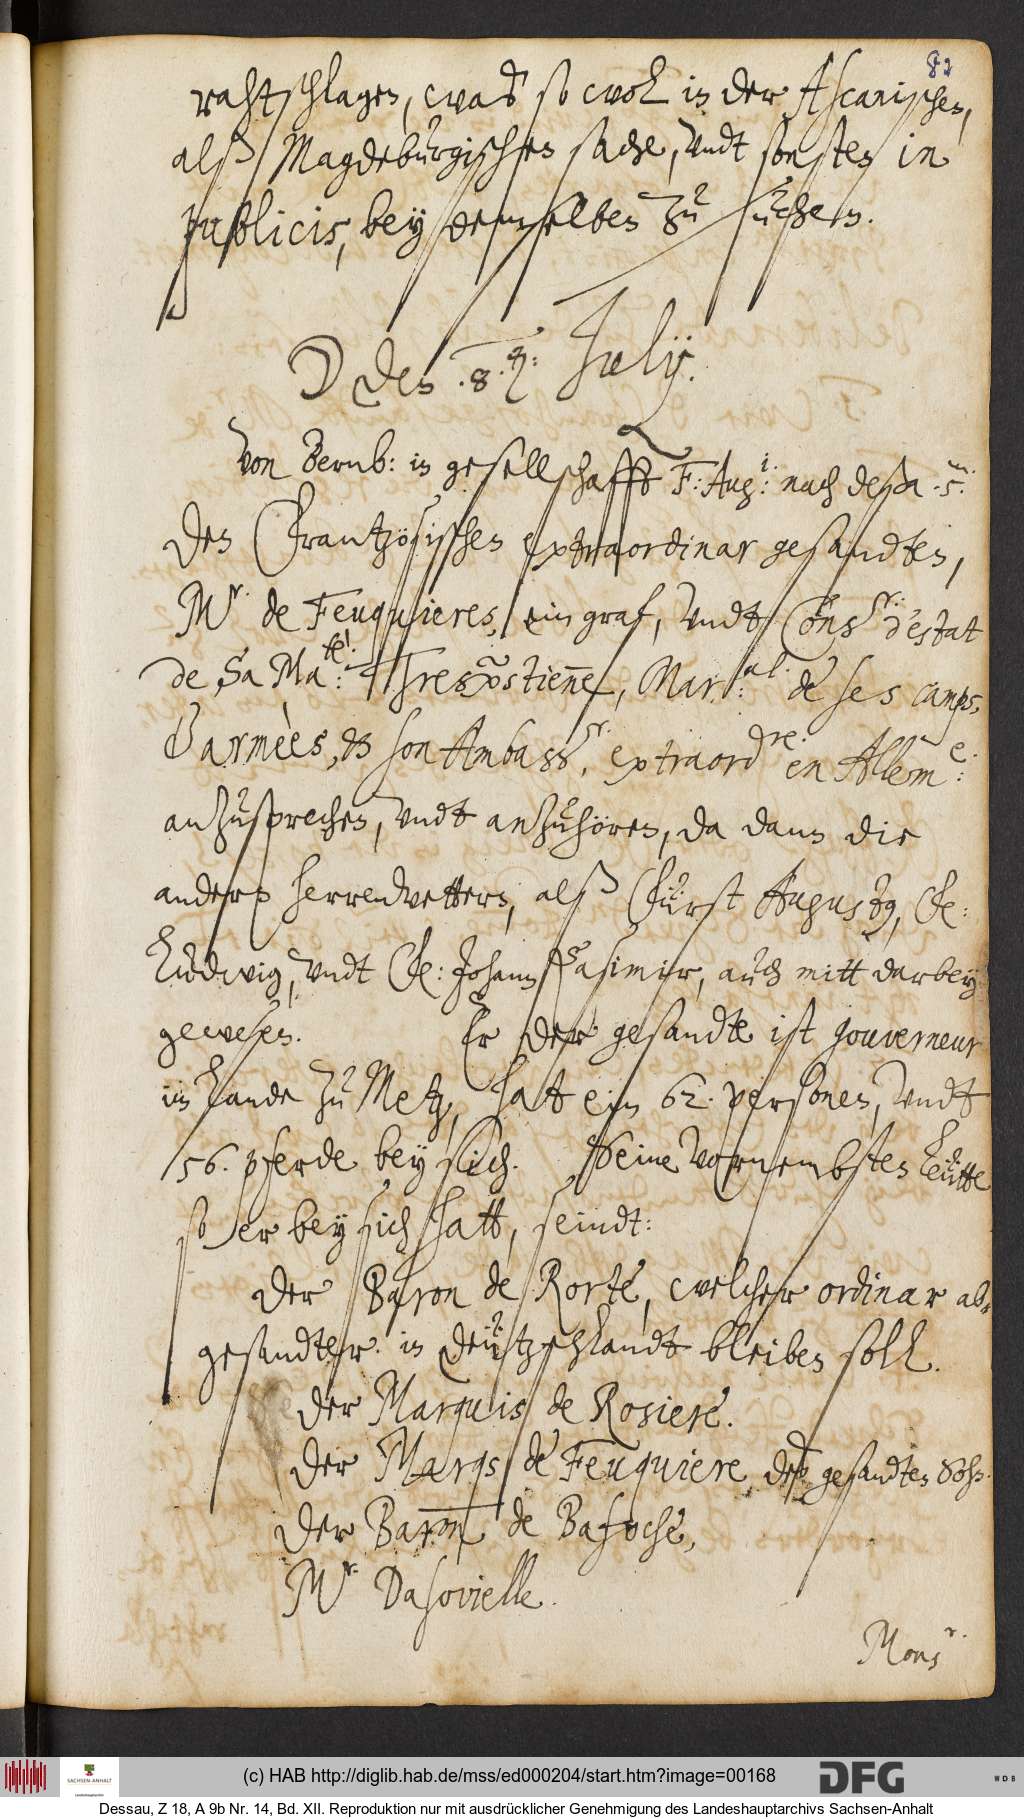 82
rahtschlagen, waß so wol in der Ascanischen,
alß Magdeburgischen sache, undt sonsten in
publicis, bey demselben zu suchen.
☽ den .8. ♃: Julij.
Von Bernb: in gesellschafft F: Aug:i: nach deßa .5.m:
den Frantzösischen extraordinar gesandten,
Mr. de Feuquieres, ein graf, undt Consr. d'estat
de Sa Ma:té! Tresxp̃stien̅e, Mar:al. de ses camps,
d'armèes, & son Ambassr. extraordre. en Allem:e:
anzusprechen, undt anzuhören, da dann die
andern herrenvettern, alß Fürst Augustus, F:
Ludwig, undt F: Johann Casimir, auch mitt darbey
gewesen. Er der gesandte ist gouverneur
im Lande zu Metz, hatt ein 62. personen, undt
56. pferde bey sich. Seine Vornembsten Leütte
so er bey sich hatt, seindt:
Der Baron de Rorté, welcher ordinar ab¬
gesandter in Deützschlandt bleiben soll.
Der Marquis de Rosiere.
Der Marqs de Feuquiere, des gesandten Sohn.
Der Baron de
Mr. Dasovielle.
Monsr.
(c) HAB http://diglib.hab.de/mss/ed000204/start.htm?image=00168
SACHSEN-ANHALT
DFG
WDB
Dessau, Z 18, A 9b Nr. 14, Bd. XII. Reproduktion nur mit ausdrücklicher Genehmigung des Landeshauptarchivs Sachsen-Anhalt